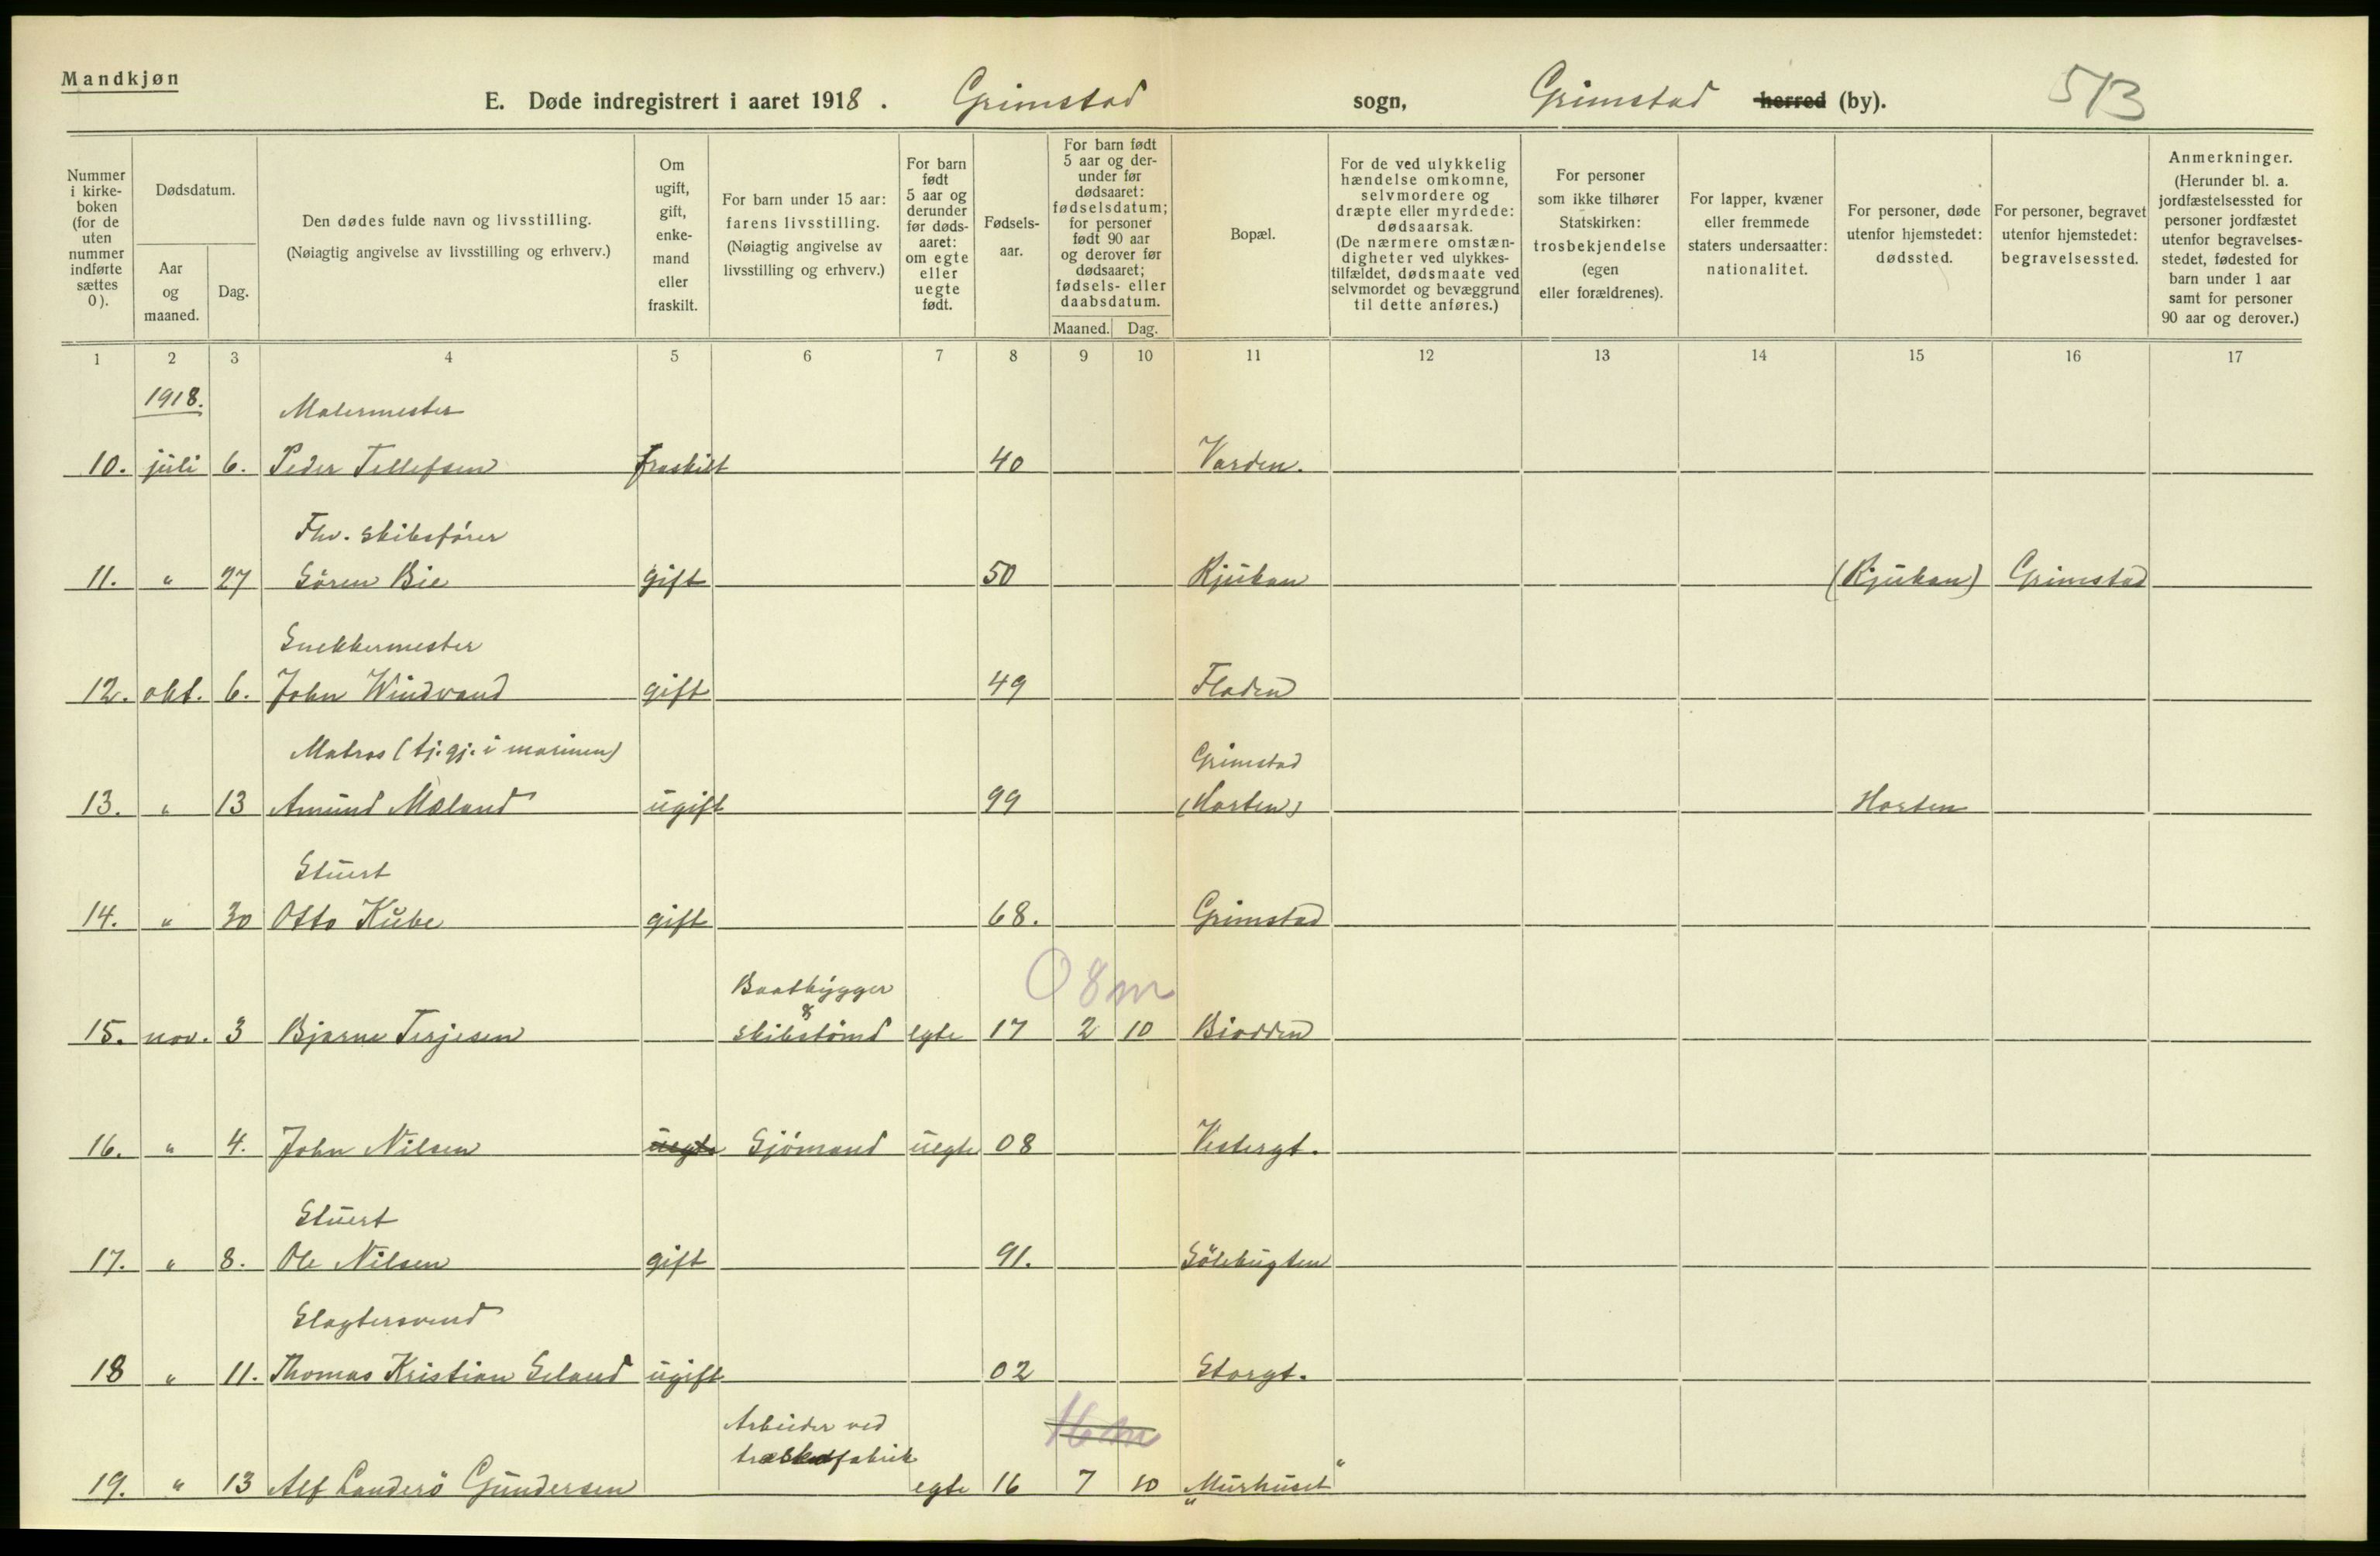 Mandkjøn
E. Døde indregistrert i aaret 1918. Grimstad sogn, Grimstad herred (by). 513
Nummer i kirke- boken (for de uten nummer indførte sættes 0).
Dødsdatum.
Aar og maaned.
Dag.
Den dødes fulde navn og livsstilling.
(Nøiagtig angivelse av livsstilling og erhverv.)
Om ugift, gift, enke- mand eller fraskilt.
For barn under 15 aar: farens livsstilling. (Nøiagtig angivelse av livsstilling og erhverv.)
For barn født 5 aar og derunder før døds- aaret: om egte eller uegte født.
Fødsels- aar.
For barn født 5 aar og der- under før dødsaaret: fødselsdatum; for personer født 90 aar og derover før dødsaaret; fødsels- eller daabsdatum.
Maaned. Dag.
Bopæl.
For de ved ulykkelig hændelse omkomne, selvmordere og dræpte eller myrdede: dødsaarsak. (De nærmere omstæn- digheter ved ulykkes- tilfældet, dødsmaate ved selvmordet og bevæggrund til dette anføres.)
For personer som ikke tilhører Statskirken: trosbekjendelse (egen eller forældrenes).
For lapper, kvæner eller fremmede staters undersaatter: nationalitet.
For personer, døde utenfor hjemstedet: dødssted.
For personer, begravet utenfor hjemstedet: begravelsessted.
Anmerkninger. (Herunder bl. a. jordfæstelsessted for personer jordfæstet utenfor begravelses- stedet, fødested for barn under 1 aar samt for personer 90 aar og derover.)
1 2 3 4 5 6 7 8 9 10 11 12 13 14 15 16 17
1918. Malermester
10. juli 6. Peder Tellefsen fraskilt 40 Varden.
Fhv. skibsfører
11. " 27 Sören Bie gift 50 Rjukan (Rjukan) Grimstad
Snekkermester
12. okt. 6. John Windvand gift 49 Floden
Matros (tj.gj. i marinen) Grimstad
13. " 13 Amund Møland ugift 99 (Horten) Horten
Stuert
14. " 30 Otto Kube gift 68. Grimstad
08m
Baatbygger
&
15. nov. 3 Bjarne Terjesen skibstömd egte 17 2 10 Biodden
16. " 4. John Nilsen uegte Sjömand uegte 08 Vestergt.
Stuert
17. " 8. Ole Nilsen gift 91. Sölebugten
Slagtersvend
18 " 11. Thomas Kristian Eeland ugift 02 Storgt.
Arbeider ved 16m
træskofabrik
19. " 13 Alf Landerö Gundersen egte 16 7 10 "Murhuset"